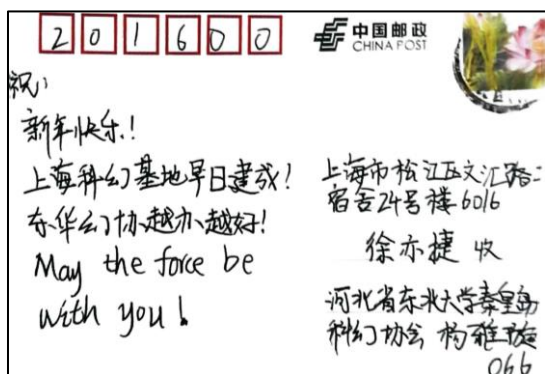 201600
中国邮政
CHINA POST
祝:
新年快乐!
上海科幻基地早日建成!
东华幻协越办越好!
May the force be
with you!
上海市松江区文汇路二
宿舍24号楼6016
徐亦捷 收
河北省东北大学秦皇岛
科幻协会 杨雅
066